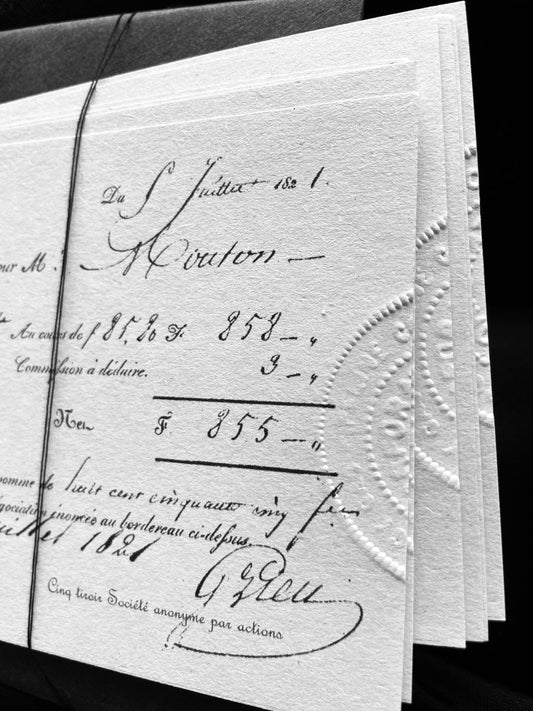 Du 5 Juillet 1821.
our M. Mouton
Au cours de f 85,20 F 858 — „
Commission à déduire. 3 — „
Net F 855 — „
omme de huit cent cinquante cinq fcs
égociation énoncés au bordereau ci-dessus.
uillet 1821
Cinq tiroir Société anonyme par actions